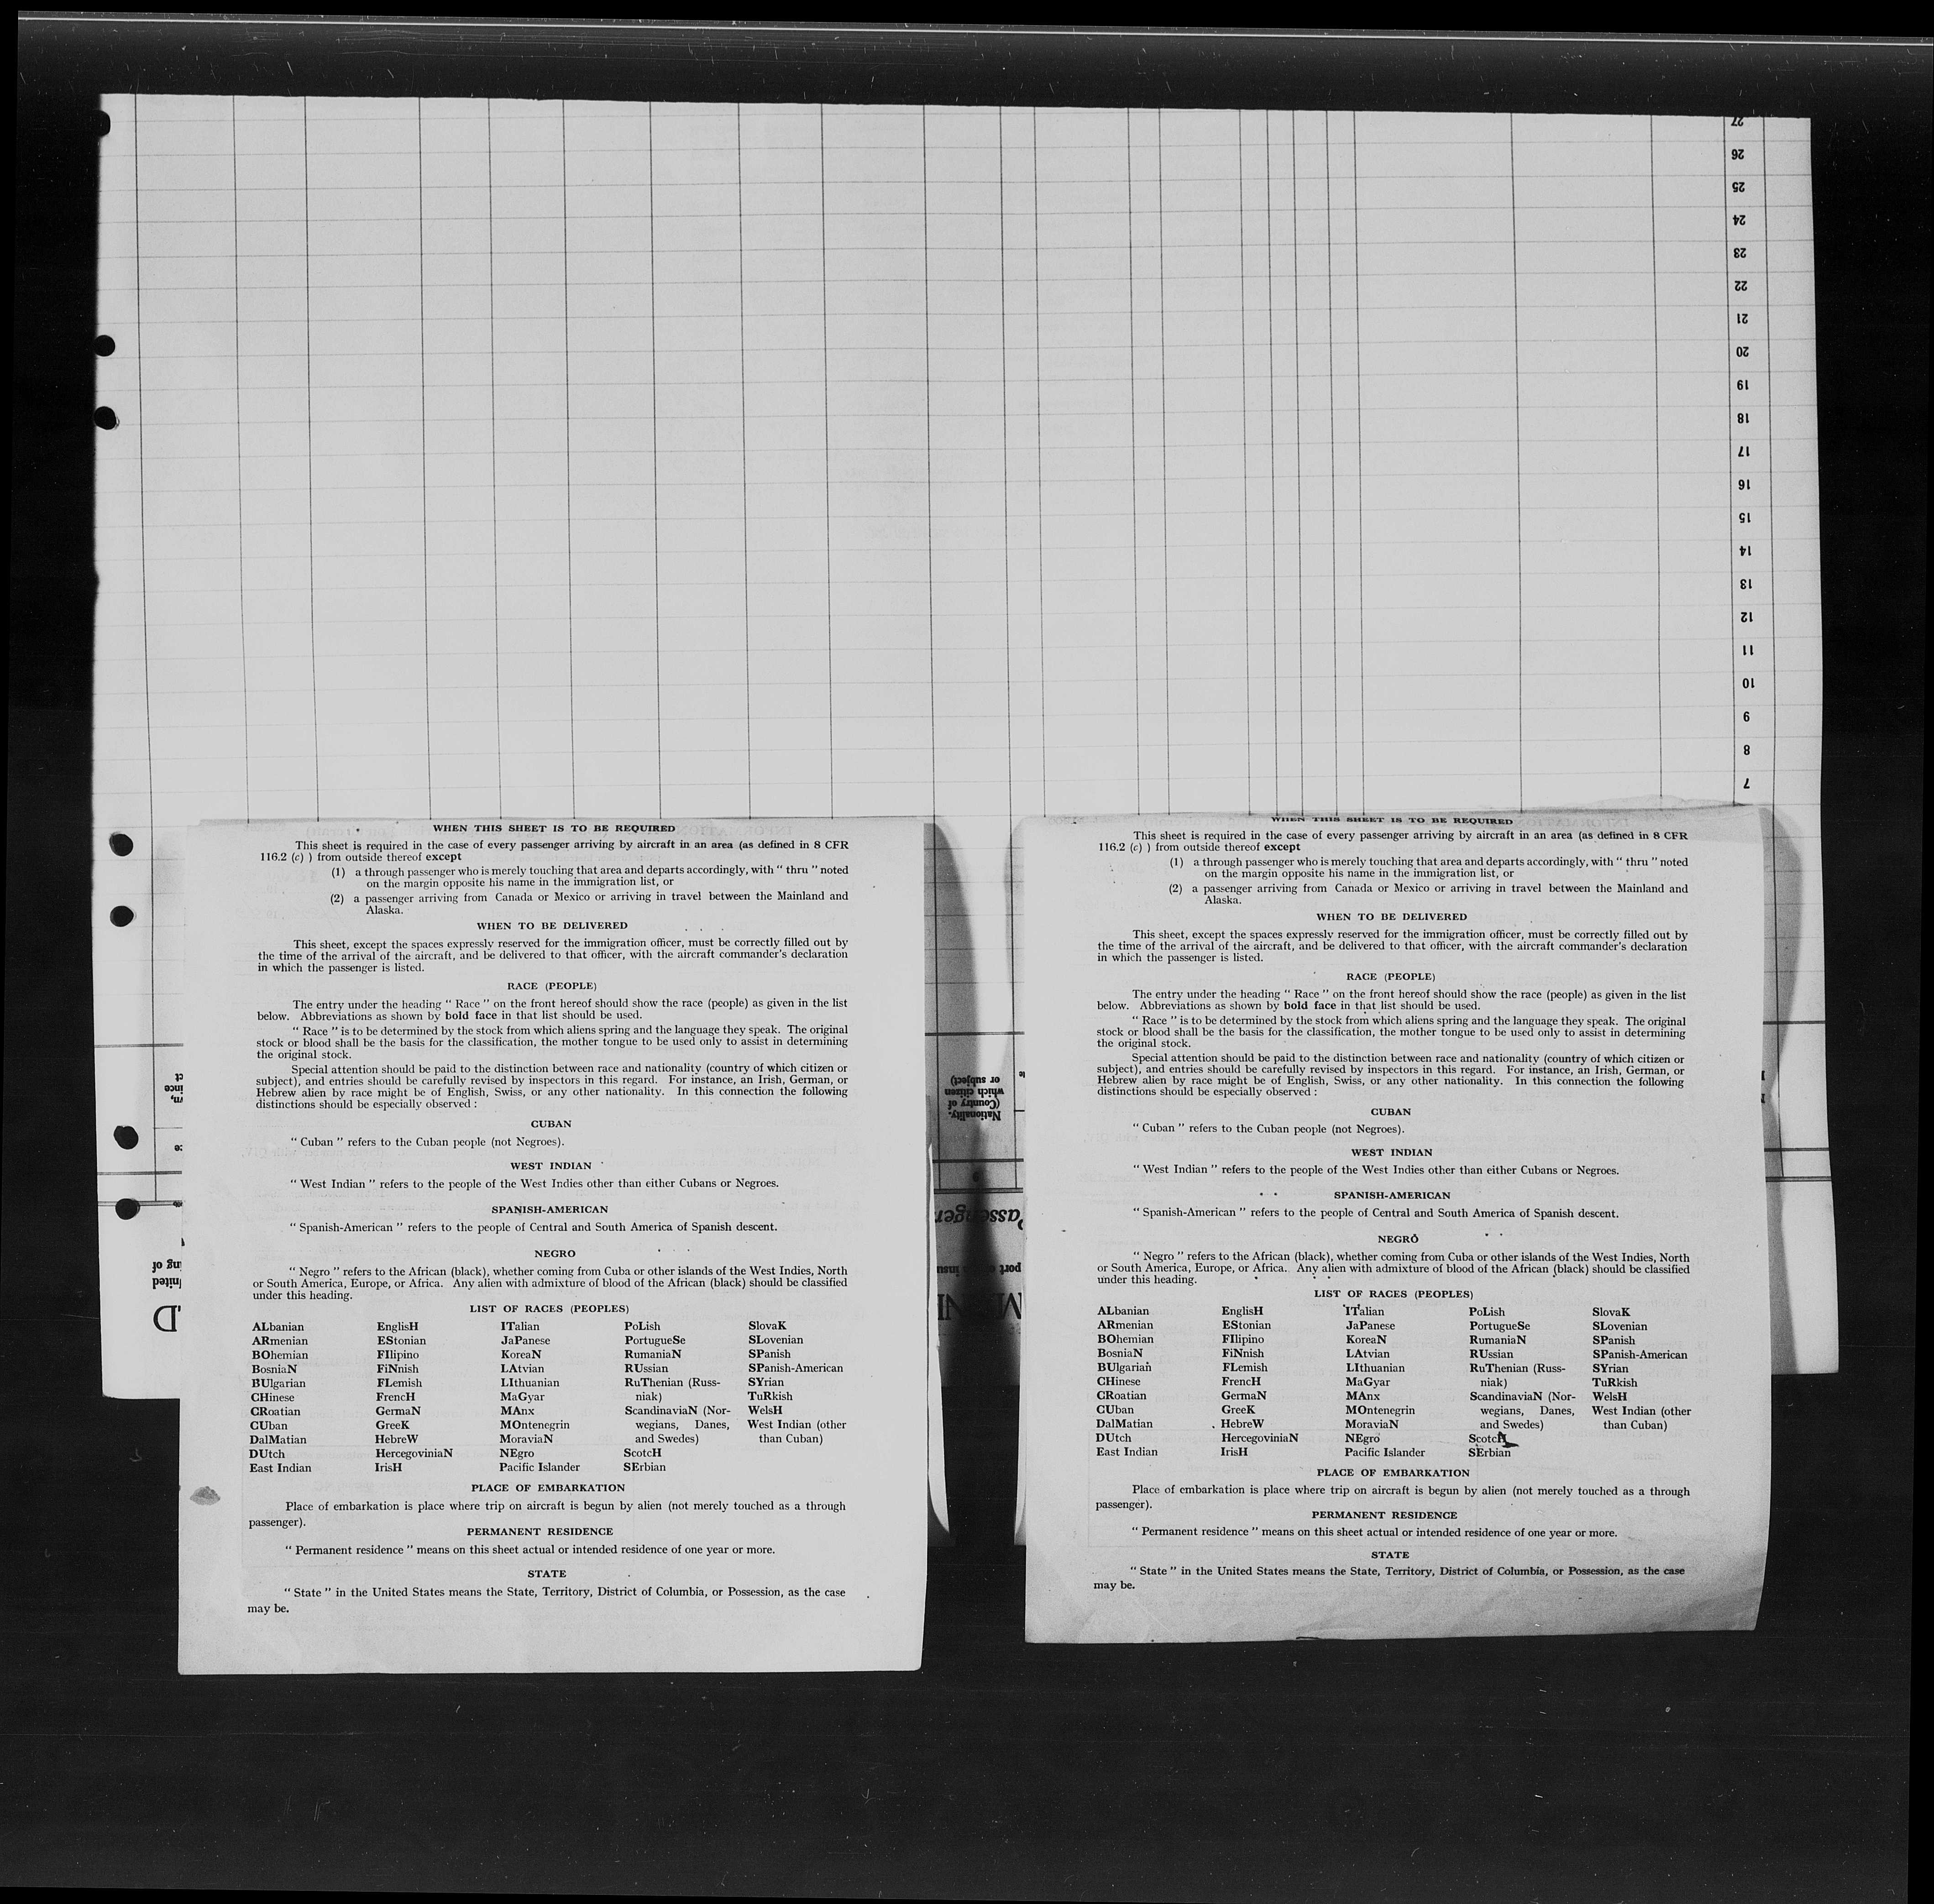 27
26
25
24
23
22
21
20
19
18
17
16
15
14
13
12
11
10
9
8
7
WHEN THIS SHEET IS TO BE REQUIRED
This sheet is required in the case of every passenger arriving by aircraft in an area (as defined in 8 CFR
116.2 (c) ) from outside thereof except
(1) a through passenger who is merely touching that area and departs accordingly, with “ thru ” noted
on the margin opposite his name in the immigration list, or
(2) a passenger arriving from Canada or Mexico or arriving in travel between the Mainland and
Alaska.
WHEN TO BE DELIVERED
This sheet, except the spaces expressly reserved for the immigration officer, must be correctly filled out by
the time of the arrival of the aircraft, and be delivered to that officer, with the aircraft commander’s declaration
in which the passenger is listed.
RACE (PEOPLE)
The entry under the heading “ Race ” on the front hereof should show the race (people) as given in the list
below. Abbreviations as shown by bold face in that list should be used.
“ Race ” is to be determined by the stock from which aliens spring and the language they speak. The original
stock or blood shall be the basis for the classification, the mother tongue to be used only to assist in determining
the original stock.
Special attention should be paid to the distinction between race and nationality (country of which citizen or
subject), and entries should be carefully revised by inspectors in this regard. For instance, an Irish, German, or
Hebrew alien by race might be of English, Swiss, or any other nationality. In this connection the following
distinctions should be especially observed :
CUBAN
“ Cuban ” refers to the Cuban people (not Negroes).
WEST INDIAN
“ West Indian ” refers to the people of the West Indies other than either Cubans or Negroes.
SPANISH-AMERICAN
“ Spanish-American ” refers to the people of Central and South America of Spanish descent.
NEGRO
“ Negro ” refers to the African (black), whether coming from Cuba or other islands of the West Indies, North
or South America, Europe, or Africa. Any alien with admixture of blood of the African (black) should be classified
under this heading.
LIST OF RACES (PEOPLES)
ALbanian EnglisH ITalian PoLish SlovaK
ARmenian EStonian JaPanese PortugueSe SLovenian
BOhemian FIlipino KoreaN RumaniaN SPanish
BosniaN FiNnish LAtvian RUssian SPanish-American
BUlgarian FLemish LIthuanian RuThenian (Russ- SYrian
CHinese FrencH MaGyar niak) TuRkish
CRoatian GermaN MAnx ScandinaviaN (Nor- WelsH
CUban GreeK MOntenegrin wegians, Danes, West Indian (other
DalMatian HebreW MoraviaN and Swedes) than Cuban)
DUtch HercegoviniaN NEgro ScotcH
East Indian IrisH Pacific Islander SErbian
PLACE OF EMBARKATION
Place of embarkation is place where trip on aircraft is begun by alien (not merely touched as a through
passenger).
PERMANENT RESIDENCE
“ Permanent residence ” means on this sheet actual or intended residence of one year or more.
STATE
“ State ” in the United States means the State, Territory, District of Columbia, or Possession, as the case
may be.
Nationality.
(Country of
which citizen
or subject)
WHEN THIS SHEET IS TO BE REQUIRED
This sheet is required in the case of every passenger arriving by aircraft in an area (as defined in 8 CFR
116.2 (c) ) from outside thereof except
(1) a through passenger who is merely touching that area and departs accordingly, with “ thru ” noted
on the margin opposite his name in the immigration list, or
(2) a passenger arriving from Canada or Mexico or arriving in travel between the Mainland and
Alaska.
WHEN TO BE DELIVERED
This sheet, except the spaces expressly reserved for the immigration officer, must be correctly filled out by
the time of the arrival of the aircraft, and be delivered to that officer, with the aircraft commander’s declaration
in which the passenger is listed.
RACE (PEOPLE)
The entry under the heading “ Race ” on the front hereof should show the race (people) as given in the list
below. Abbreviations as shown by bold face in that list should be used.
“ Race ” is to be determined by the stock from which aliens spring and the language they speak. The original
stock or blood shall be the basis for the classification, the mother tongue to be used only to assist in determining
the original stock.
Special attention should be paid to the distinction between race and nationality (country of which citizen or
subject), and entries should be carefully revised by inspectors in this regard. For instance, an Irish, German, or
Hebrew alien by race might be of English, Swiss, or any other nationality. In this connection the following
distinctions should be especially observed :
CUBAN
“ Cuban ” refers to the Cuban people (not Negroes).
WEST INDIAN
“ West Indian ” refers to the people of the West Indies other than either Cubans or Negroes.
SPANISH-AMERICAN
“ Spanish-American ” refers to the people of Central and South America of Spanish descent.
NEGRO
“ Negro ” refers to the African (black), whether coming from Cuba or other islands of the West Indies, North
or South America, Europe, or Africa. Any alien with admixture of blood of the African (black) should be classified
under this heading.
LIST OF RACES (PEOPLES)
ALbanian EnglisH ITalian PoLish SlovaK
ARmenian EStonian JaPanese PortugueSe SLovenian
BOhemian FIlipino KoreaN RumaniaN SPanish
BosniaN FiNnish LAtvian RUssian SPanish-American
BUlgarian FLemish LIthuanian RuThenian (Russ- SYrian
CHinese FrencH MaGyar niak) TuRkish
CRoatian GermaN MAnx ScandinaviaN (Nor- WelsH
CUban GreeK MOntenegrin wegians, Danes, West Indian (other
DalMatian HebreW MoraviaN and Swedes) than Cuban)
DUtch HercegoviniaN NEgro ScotcH
East Indian IrisH Pacific Islander SErbian
PLACE OF EMBARKATION
Place of embarkation is place where trip on aircraft is begun by alien (not merely touched as a through
passenger).
PERMANENT RESIDENCE
“ Permanent residence ” means on this sheet actual or intended residence of one year or more.
STATE
“ State ” in the United States means the State, Territory, District of Columbia, or Possession, as the case
may be.